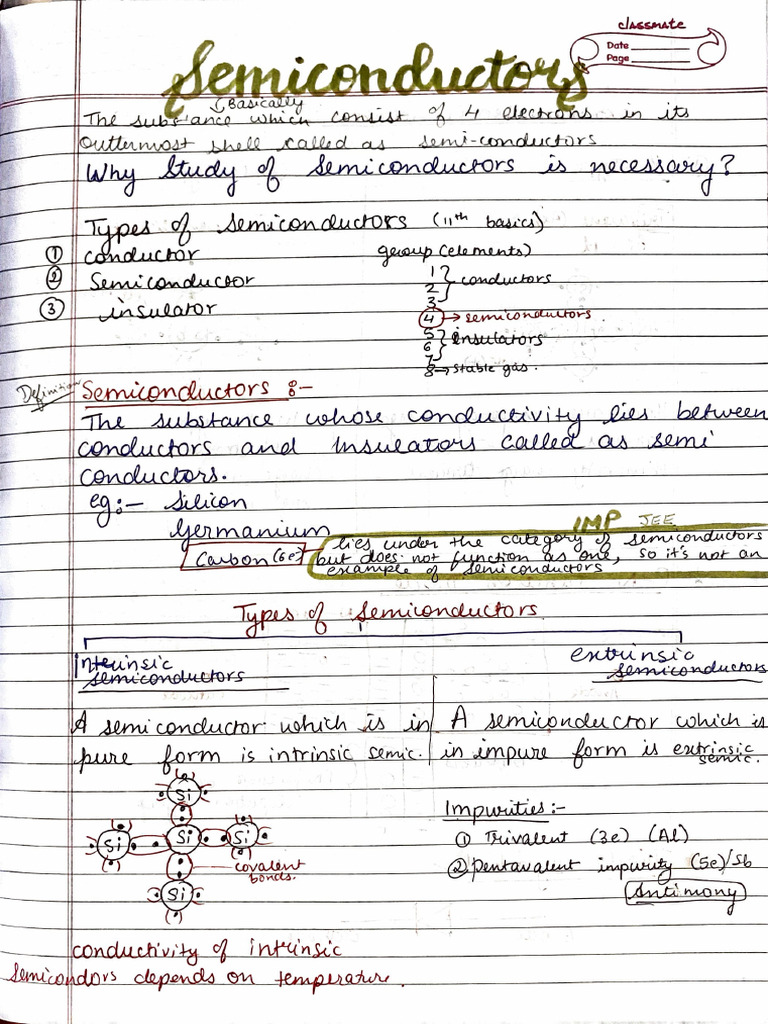 classmate
Date
Page
Semiconductors
↓ Basically
The substance which consist of 4 electrons in its
outtermost shell called as semi-conductors
Why Study of Semiconductors is necessary?
Types of semiconductors (11th basics)
① conductor
② Semiconductoor
③ insulator
group (elements)
1
2 } conductors
3
4 → semiconductors.
5
6 } insulators
7
8 → stable gas.
Definition
Semiconductors :-
The substance whose conductivity lies between
conductors and Insulators called as semi
conductors.
eg:- Silicon
Germanium
IMP JEE
Carbon (6e)
lies under the category of semiconductors
but does not function as one, so it's not an
example of semiconductors
Types of Semiconductors
intrinsic
semiconductors
extrinsic
semiconductors
A semiconductor which is in
pure form is intrinsic semic.
A semiconductor which is
in impure form is extrinsic
semic.
Si
Si Si Si
Si
covalent
bonds.
Impurities:-
① Trivalent (3e) (Al)
② Pentavalent impurity (5e)/Sb
Antimony
conductivity of intrinsic
Semicondors depends on temperature.